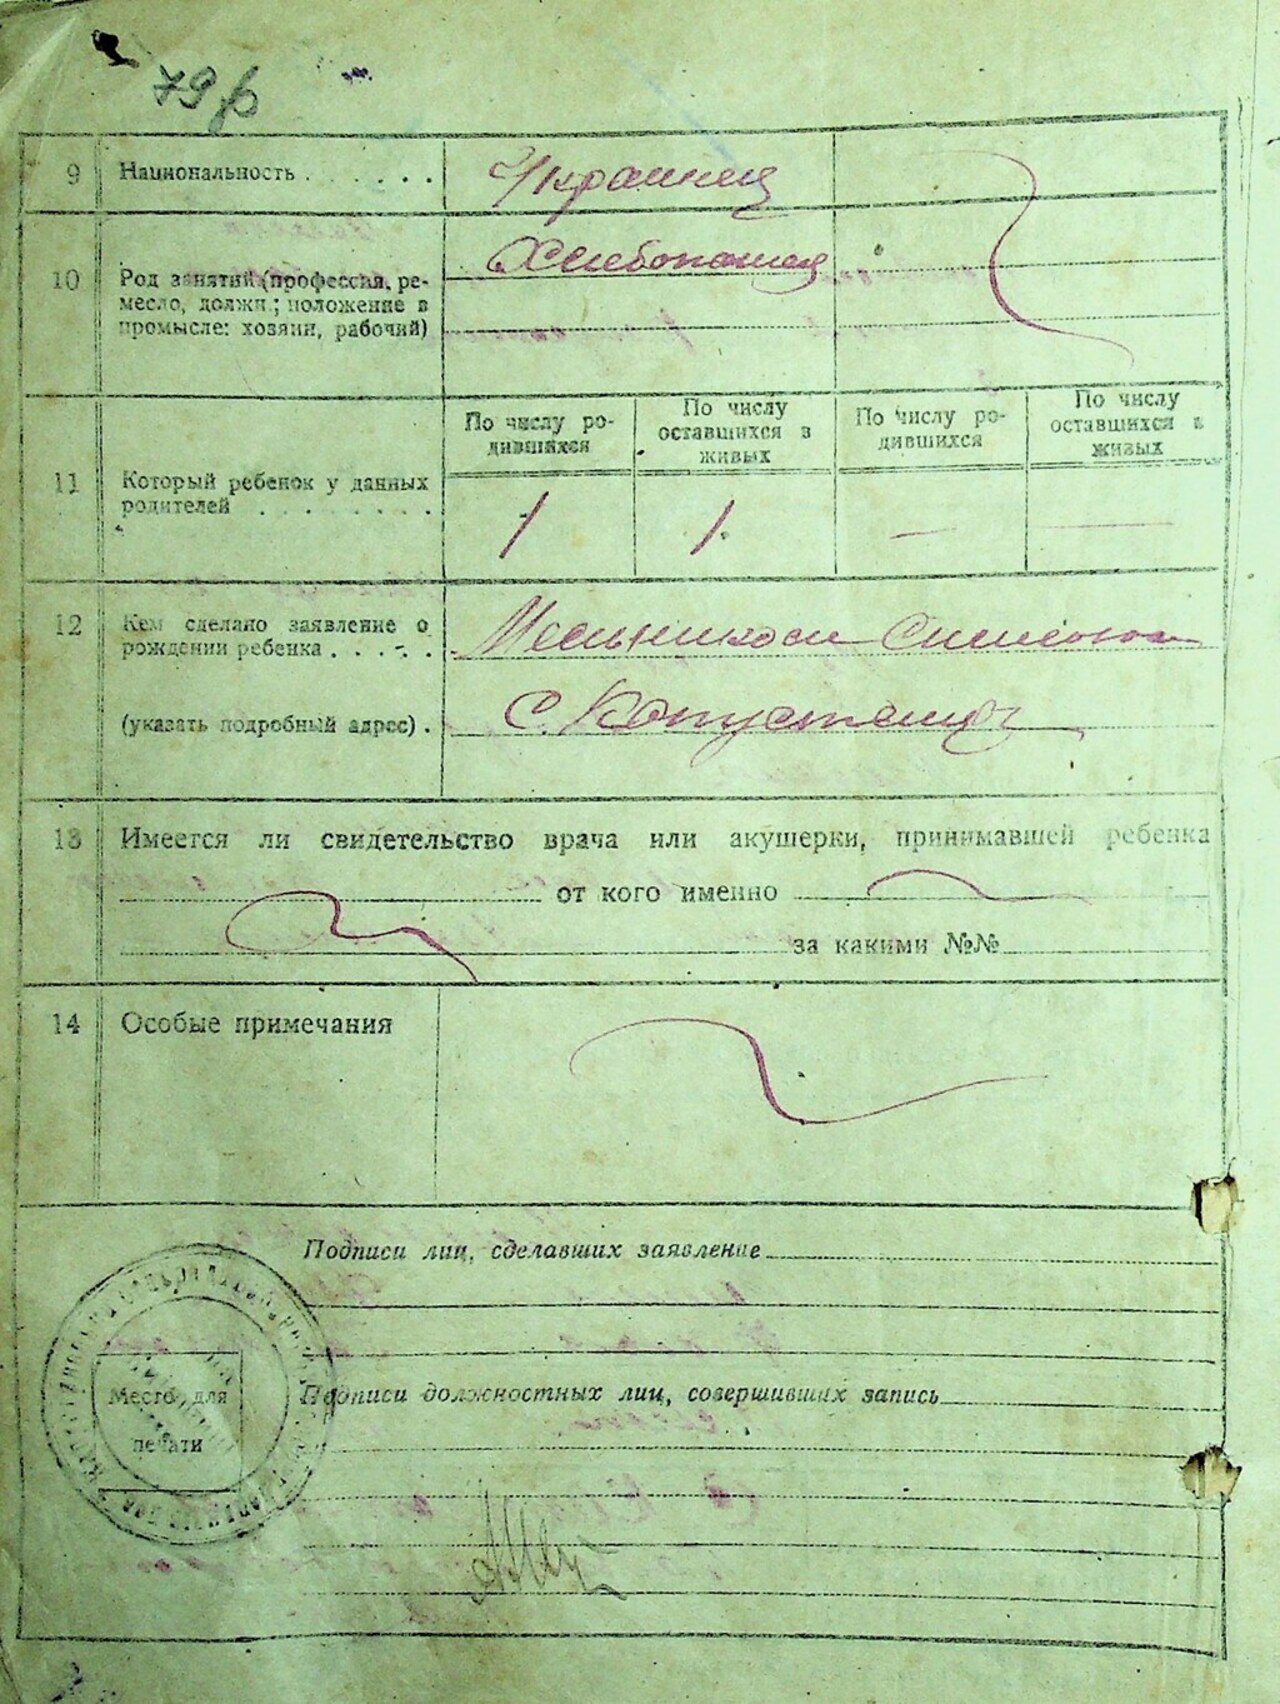 79 р
9 Национальность . . . . . . Украинец
Хлебопашец
10 Род занятий (профессия, ре-
месло, должн.; положение в
промысле: хозяин, рабочий)
По числу ро-
дившихся
По числу
оставшихся в
живых
По числу ро-
дившихся
По числу
оставшихся в
живых
11 Который ребенок у данных
родителей . . . . . . . .
1 1. — —
12 Кем сделано заявление о
рождении ребенка . . . . .
(указать подробный адрес) . С.
13 Имеется ли свидетельство врача или акушерки, принимавшей ребенка
от кого именно
за какими №№
14 Особые примечания
Подписи лиц, сделавших заявление
Подписи должностных лиц, совершивших запись
Место для
печати